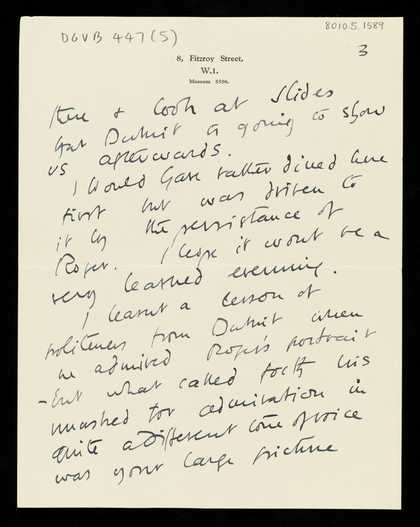 DGVB 447(5)
8010.5.1589
3
8, Fitzroy Street,
W.1.
Museum
here & look at slides
that Duthuit is going to show
us afterwards.
I would have rather dined here
first but was driven to
it by the persistance of
Roger. I hope it wont be a
very learned evening.
I learnt a lesson of
politeness from Duthuit when
he admired Roger's portrait
- but what called forth his
unasked for admiration in
quite a different tone of voice
was your large picture